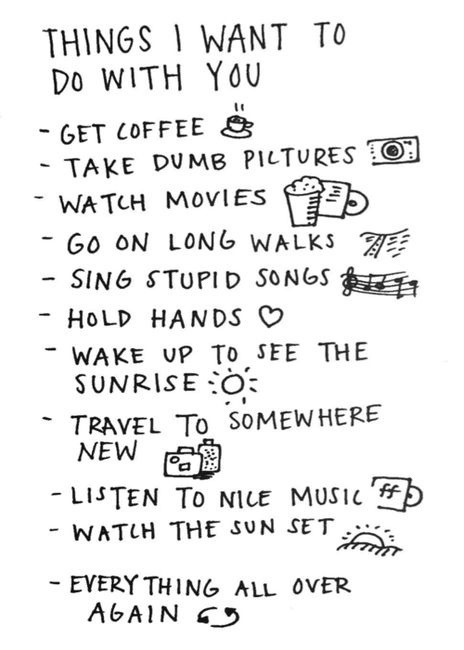 THINGS I WANT TO
DO WITH YOU
- GET COFFEE
- TAKE DUMB PICTURES
- WATCH MOVIES
- GO ON LONG WALKS
- SING STUPID SONGS
- HOLD HANDS
- WAKE UP TO SEE THE
SUNRISE
- TRAVEL TO SOMEWHERE
NEW
- LISTEN TO NICE MUSIC ff
- WATCH THE SUN SET
- EVERYTHING ALL OVER
AGAIN